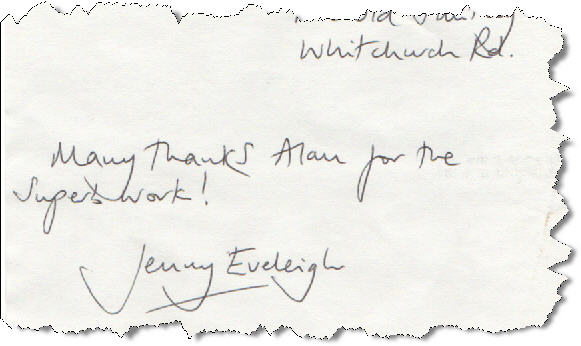 Whitchurch Rd.
Many Thanks Alan for the
Superb work!
Jenny Eveleigh